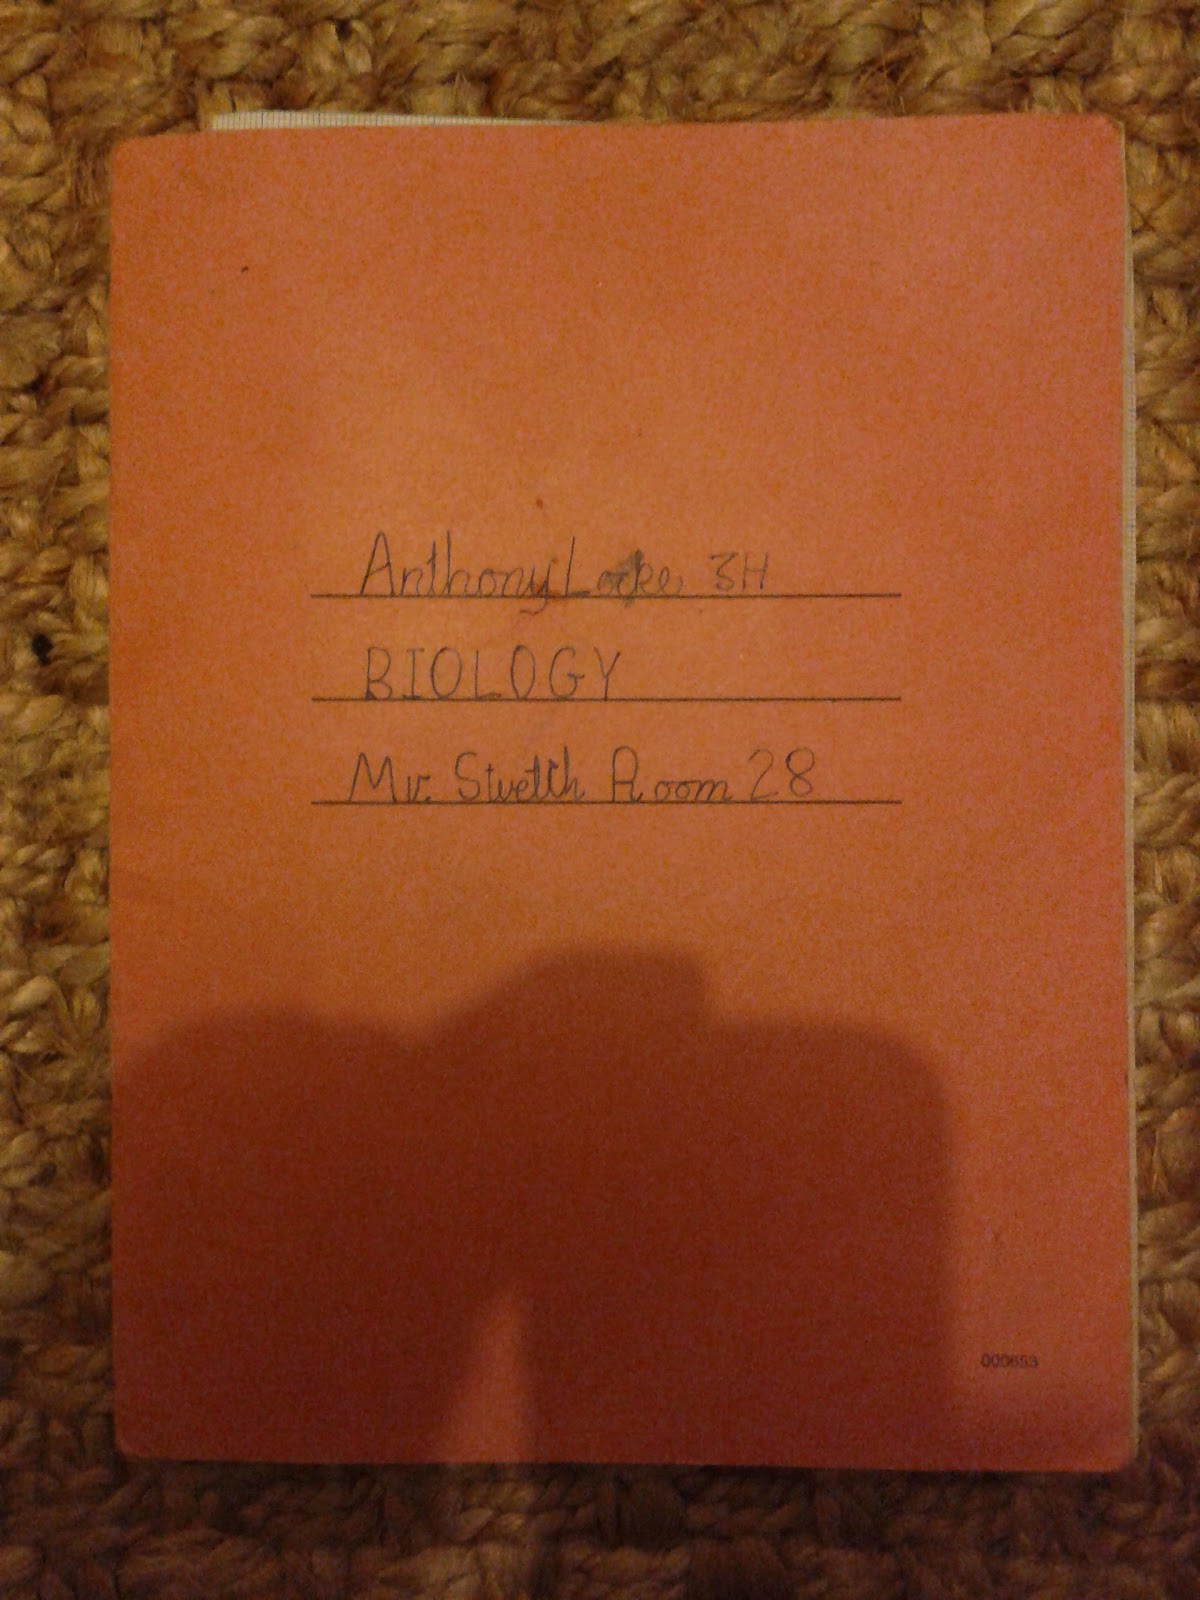 Anthony Locke 3H
BIOLOGY
Mr. Stretch Room 28
000653